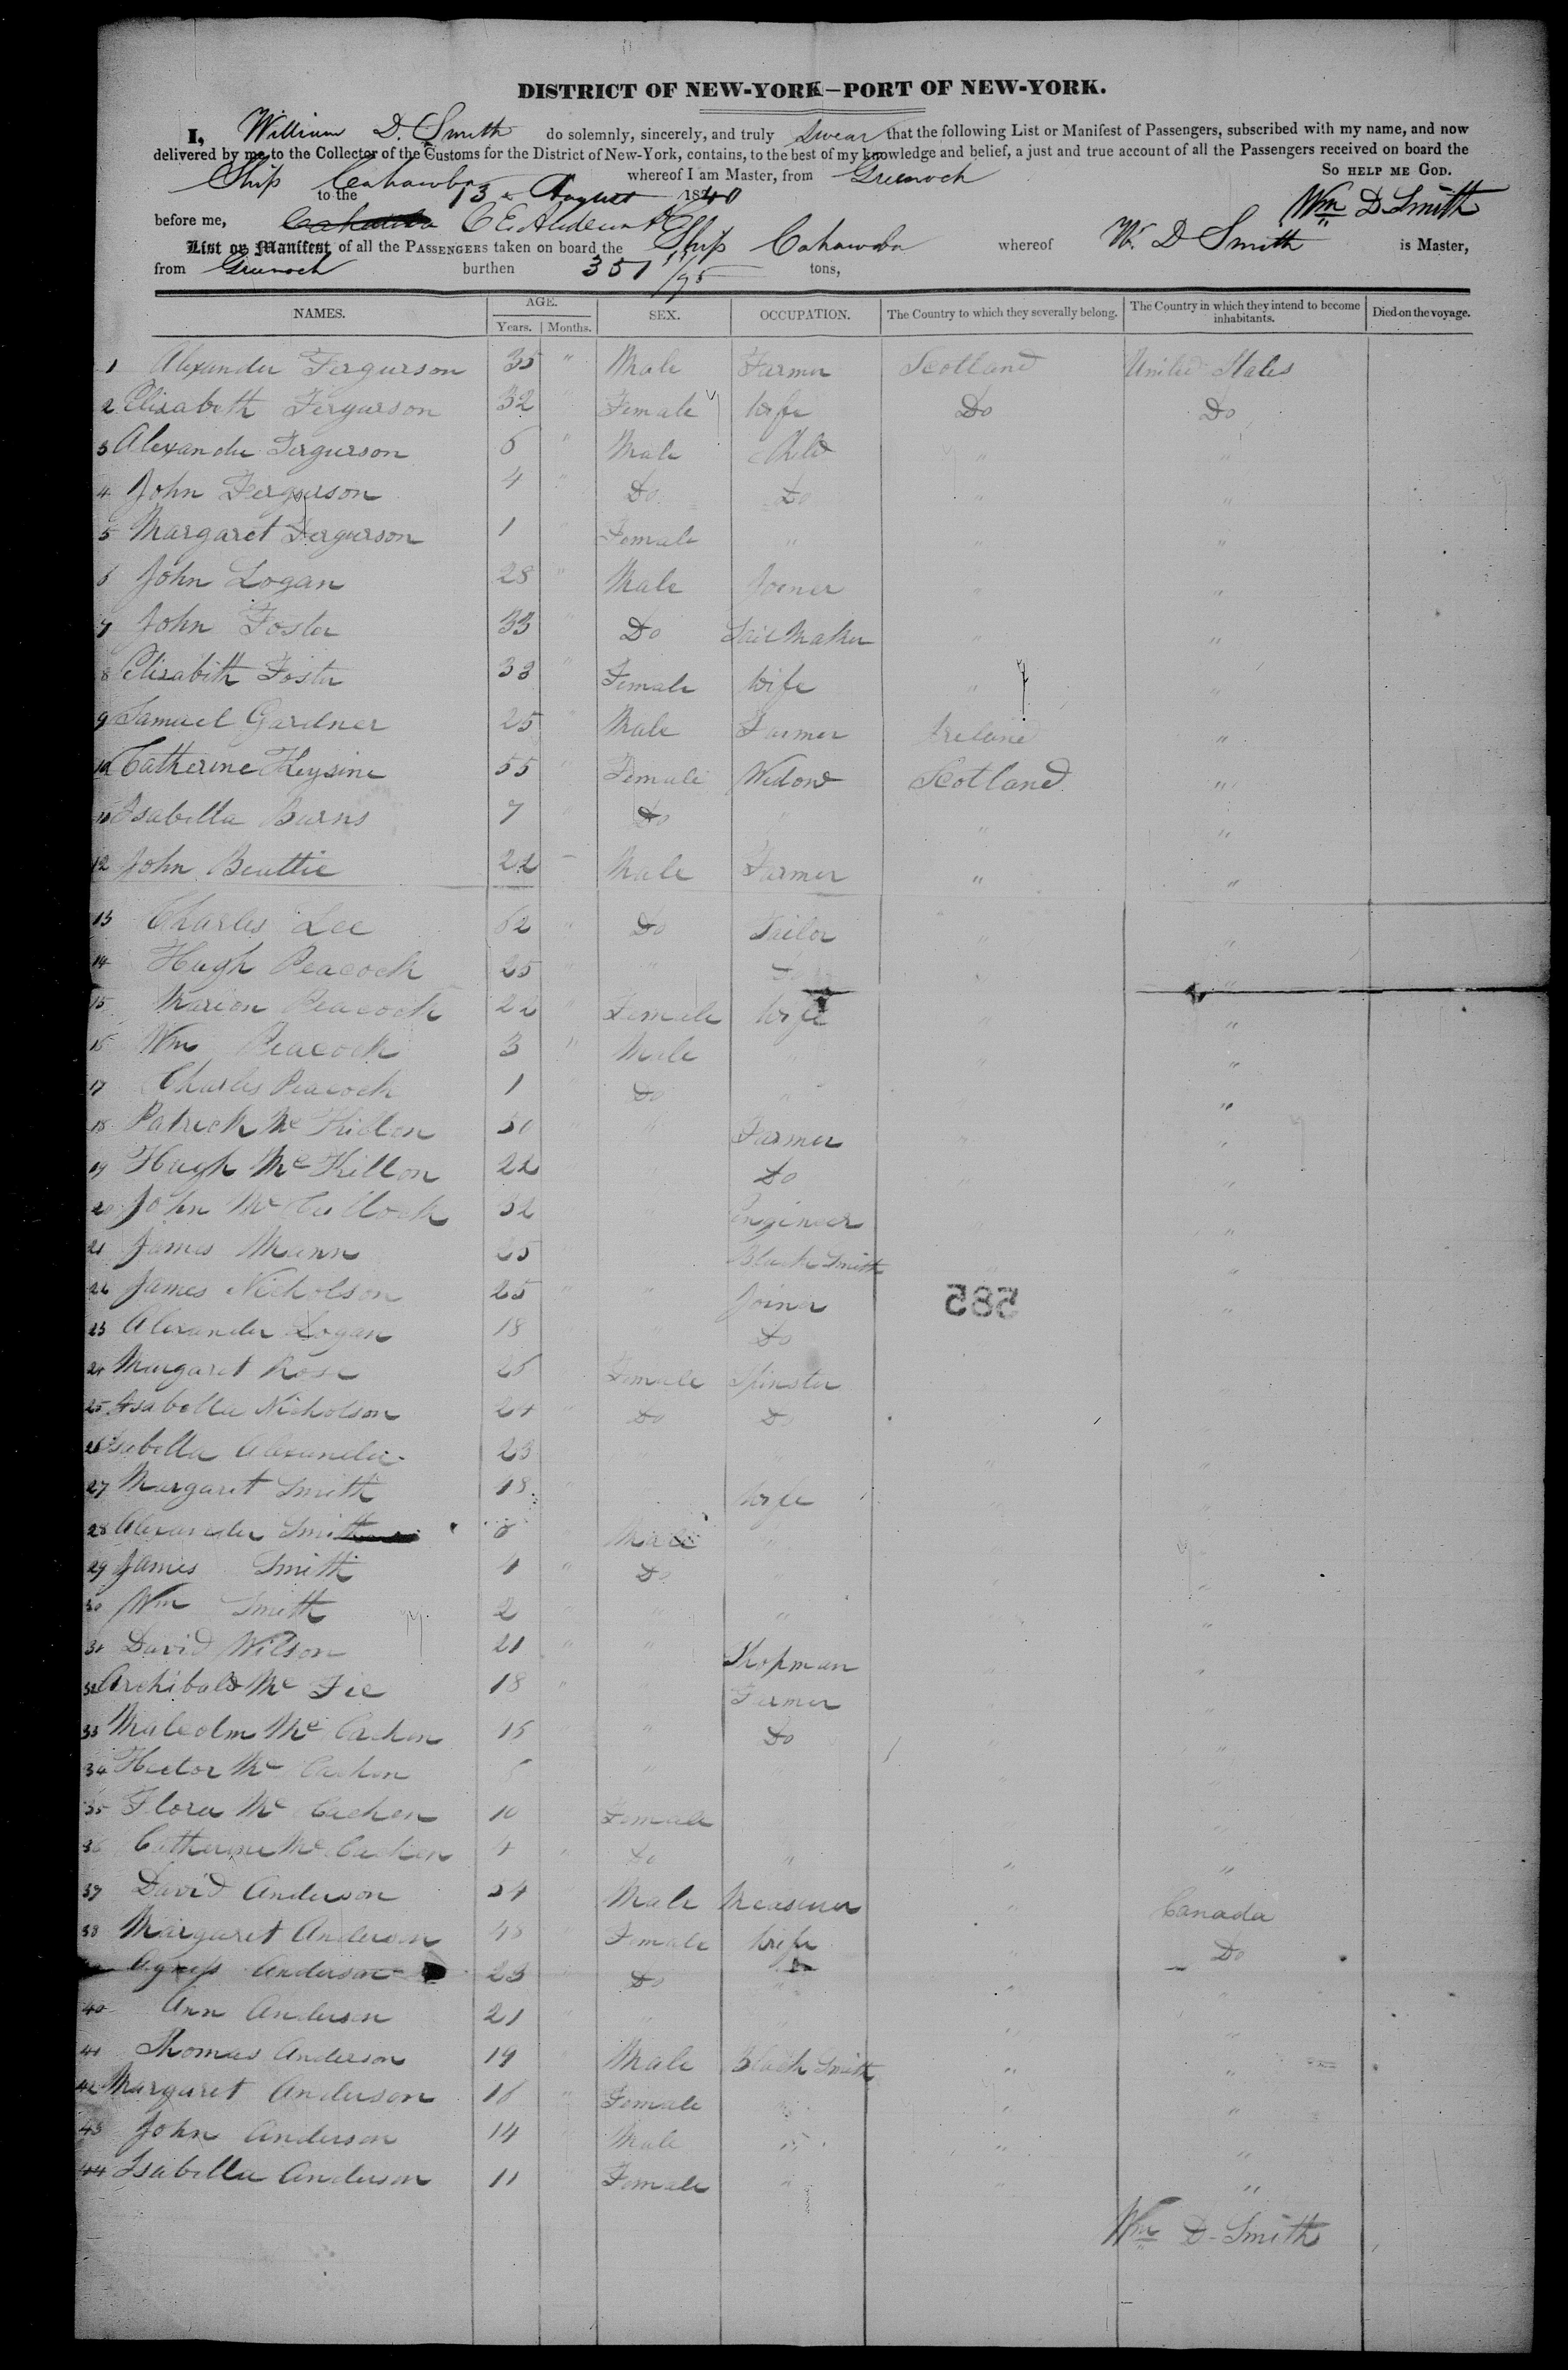 DISTRICT OF NEW-YORK—PORT OF NEW-YORK.
I, William D. Smith do solemnly, sincerely, and truly Swear that the following List or Manifest of Passengers, subscribed with my name, and now
delivered by me to the Collector of the Customs for the District of New-York, contains, to the best of my knowledge and belief, a just and true account of all the Passengers received on board the
Ship Cahawba whereof I am Master, from Greenock So HELP ME GOD.
to the 13 August 1840
Wm D Smith
before me,
List or Manifest of all the PASSENGERS taken on board the Ship Cahawba whereof W. D Smith is Master,
from Greenock burthen 351 /95 tons,
NAMES. AGE. Years. Months. SEX. OCCUPATION. The Country to which they severally belong. The Country in which they intend to become inhabitants. Died on the voyage.
1 Alexander Fergurson 35 " Male Farmer Scotland United States
2 Elizabeth Fergurson 32 " Female Wife Do Do
3 Alexander Fergurson 6 " Male Child " "
4 John Fergurson 4 " Do Do " "
5 Margaret Fergurson 1 " Female " " "
6 John Logan 28 " Male Joiner " "
7 John Foster 33 " Do Sail Maker " "
8 Elizabith Foster 33 " Female Wife " "
9 Samuel Gardner 25 " Male Farmer Ireland "
10 Catherine 55 " Female Widow Scotland "
11 Isabella Barns 7 " Do " " "
12 John Beattie 22 " Male Farmer " "
13 Charles Lee 62 " Do Tailor " "
14 Hugh Peacock 25 " " Do " "
15 Marion Peacock 22 " Female Wife " "
16 Wm Peacock 3 " Male " " "
17 Charles Peacock 1 " Do " " "
18 Patrick Mc 30 " " Farmer " "
19 Hugh Mc Killon 22 " Do " "
20 John Mc Cullock 32 " Engineer "
21 James Mann 25 Black Smith " "
22 James Nicholson 25 " " Joiner "
585
23 Alexander Logan 18 " Do
24 Margaret Rose 25 Female Spinster
25 Isabella Nicholson 24 " Do Do
26 Isabella Alexander 23 " "
27 Margaret Smith 18 " Wife
28 Alexander Smith 6 Male "
29 James Smith 4 " Do "
30 Wm Smith 2 " " " "
31 David Wilson 21 " " Shopman " "
32 Archibald Mc Fee 18 " " Farmer " "
33 Malcolm Mc 15 " Do " "
34 Hector Mc "
35 Flora Mc 10 Female
36 Catherine Mc 4 " Do " " "
37 David Anderson 54 Male Measurer " Canada
38 Margaret Anderson 48 Female Wife " Do
Agness Anderson 23 " Do " " "
40 Ann Anderson 21 " " " "
41 Thomas Anderson 19 " Male Black Smith " "
42 Margaret Anderson 16 " Female " " "
43 John Anderson 14 " Male " " "
44 Isabella Anderson 11 " Female " " "
Wm D. Smith